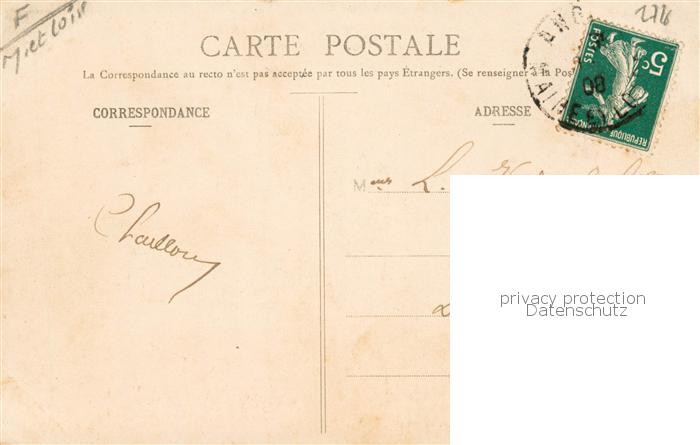 F
M et Loir
2716
CARTE POSTALE
La Correspondance au recto n'est pas acceptée par tous les pays Étrangers. (Se renseigner à la Pos
CORRESPONDANCE
ADRESSE
POSTES
5c
REPUBLIQUE FRANÇAISE
08
M
L.
privacy protection
Datenschutz